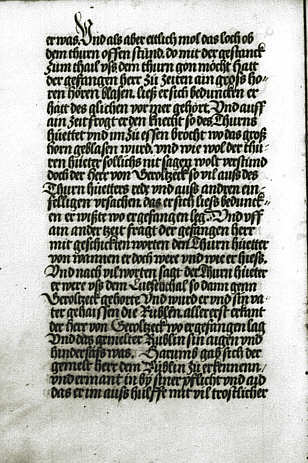 er was. Vnd als aber ettlich mol das loch ob
dem thurn offen stünd. do mit der gestanck
Zum thail vss dem thurn gon möcht hatt
der gefangen herr Zü Zeiten ain gross ho-
ren hören blasen. liess er sich beduncken er
hatt des glichen vor mer gehört. Vnd auff
ain Zeit frogt er den knecht so des Thurns
hüettet vnd im Zü essen brocht wo das groß
horn geblasen wurd. vnd wie wol der thü-
ren hüetter sollichs nit sagen wolt verstund
doch der herr von Geroltzeck so vil auß des
Thurn hüetters rede vnd auß andren ein-
felligen vrsachen. das er sich liess bedunck-
en er wißte wo er gefangen leg. Vnd vff
ain ander Zeyt fragt der gefangen herr
mit geschickten worten den Thürn hüetter
von wannen er doch were vnd wie er hieß.
Vnd nach vil worten sagt der Thurn hüeter
er were vß dem Lützelthal so dann genn
Geroltzeck gehorte Vnd wurd er vnd sin va-
ter gehaissen die Rublin. allererst erkant
der herr von Geroltzeck wo er gefangen lag
Vnd das gemelter Rublin sin aigen vnd
hindersäß was. Darumb gab sich der
gemelt herr dem Rüblin Zu erkennenn.
vnd ermant in by siner pflücht vnd aid
das er im auß hülffe mit vil trostlicher